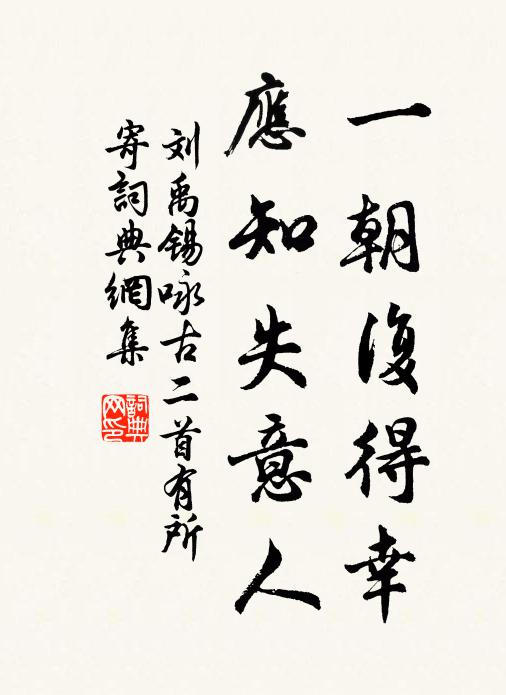 一朝復得幸
應知失意人
刘禹锡咏古二首有所
寄詞典網集
詞典
网印